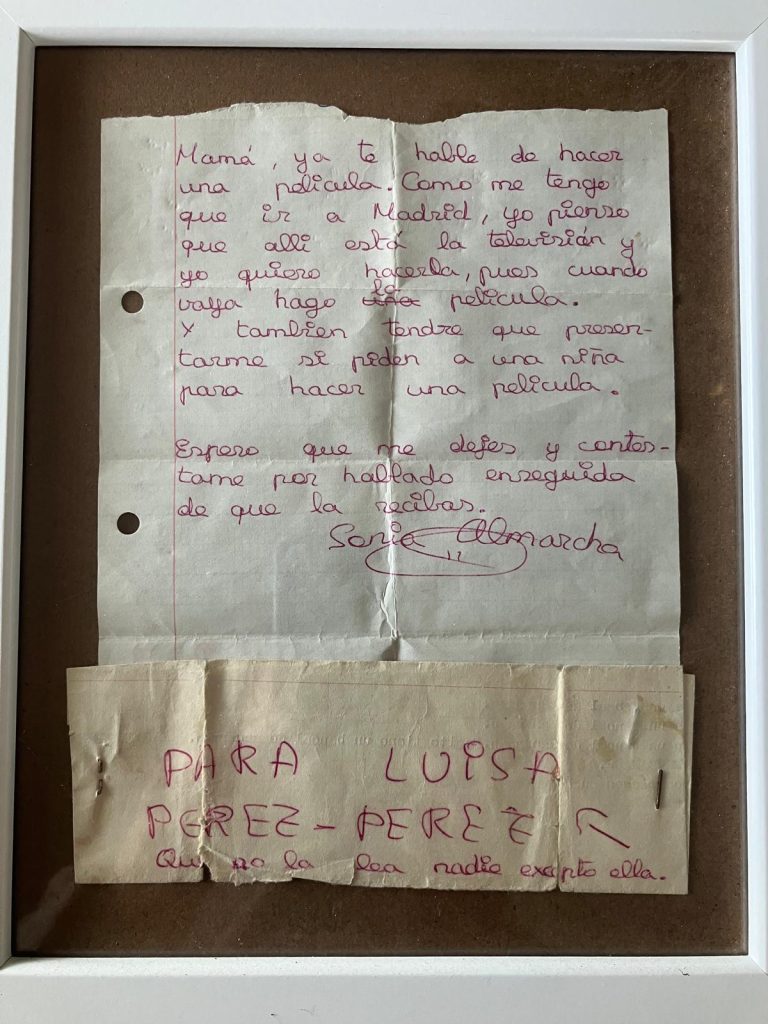 Mamá, ya te hable de hacer
una pelicula. Como me tengo
que ir a Madrid, yo pienso
que alli está la televisián y
yo quiero hacerla, pues cuando
vaya hago la pelicula.
Y tambien tendre que presen-
tarme si piden a una niña
para hacer una pelicula.
Espero que me dejes y contes-
tame por hablado enseguida
de que la recibas.
Sonia Almarcha
PARA LUISA
PEREZ-PEREZ
Que no la lea nadie exepto ella.